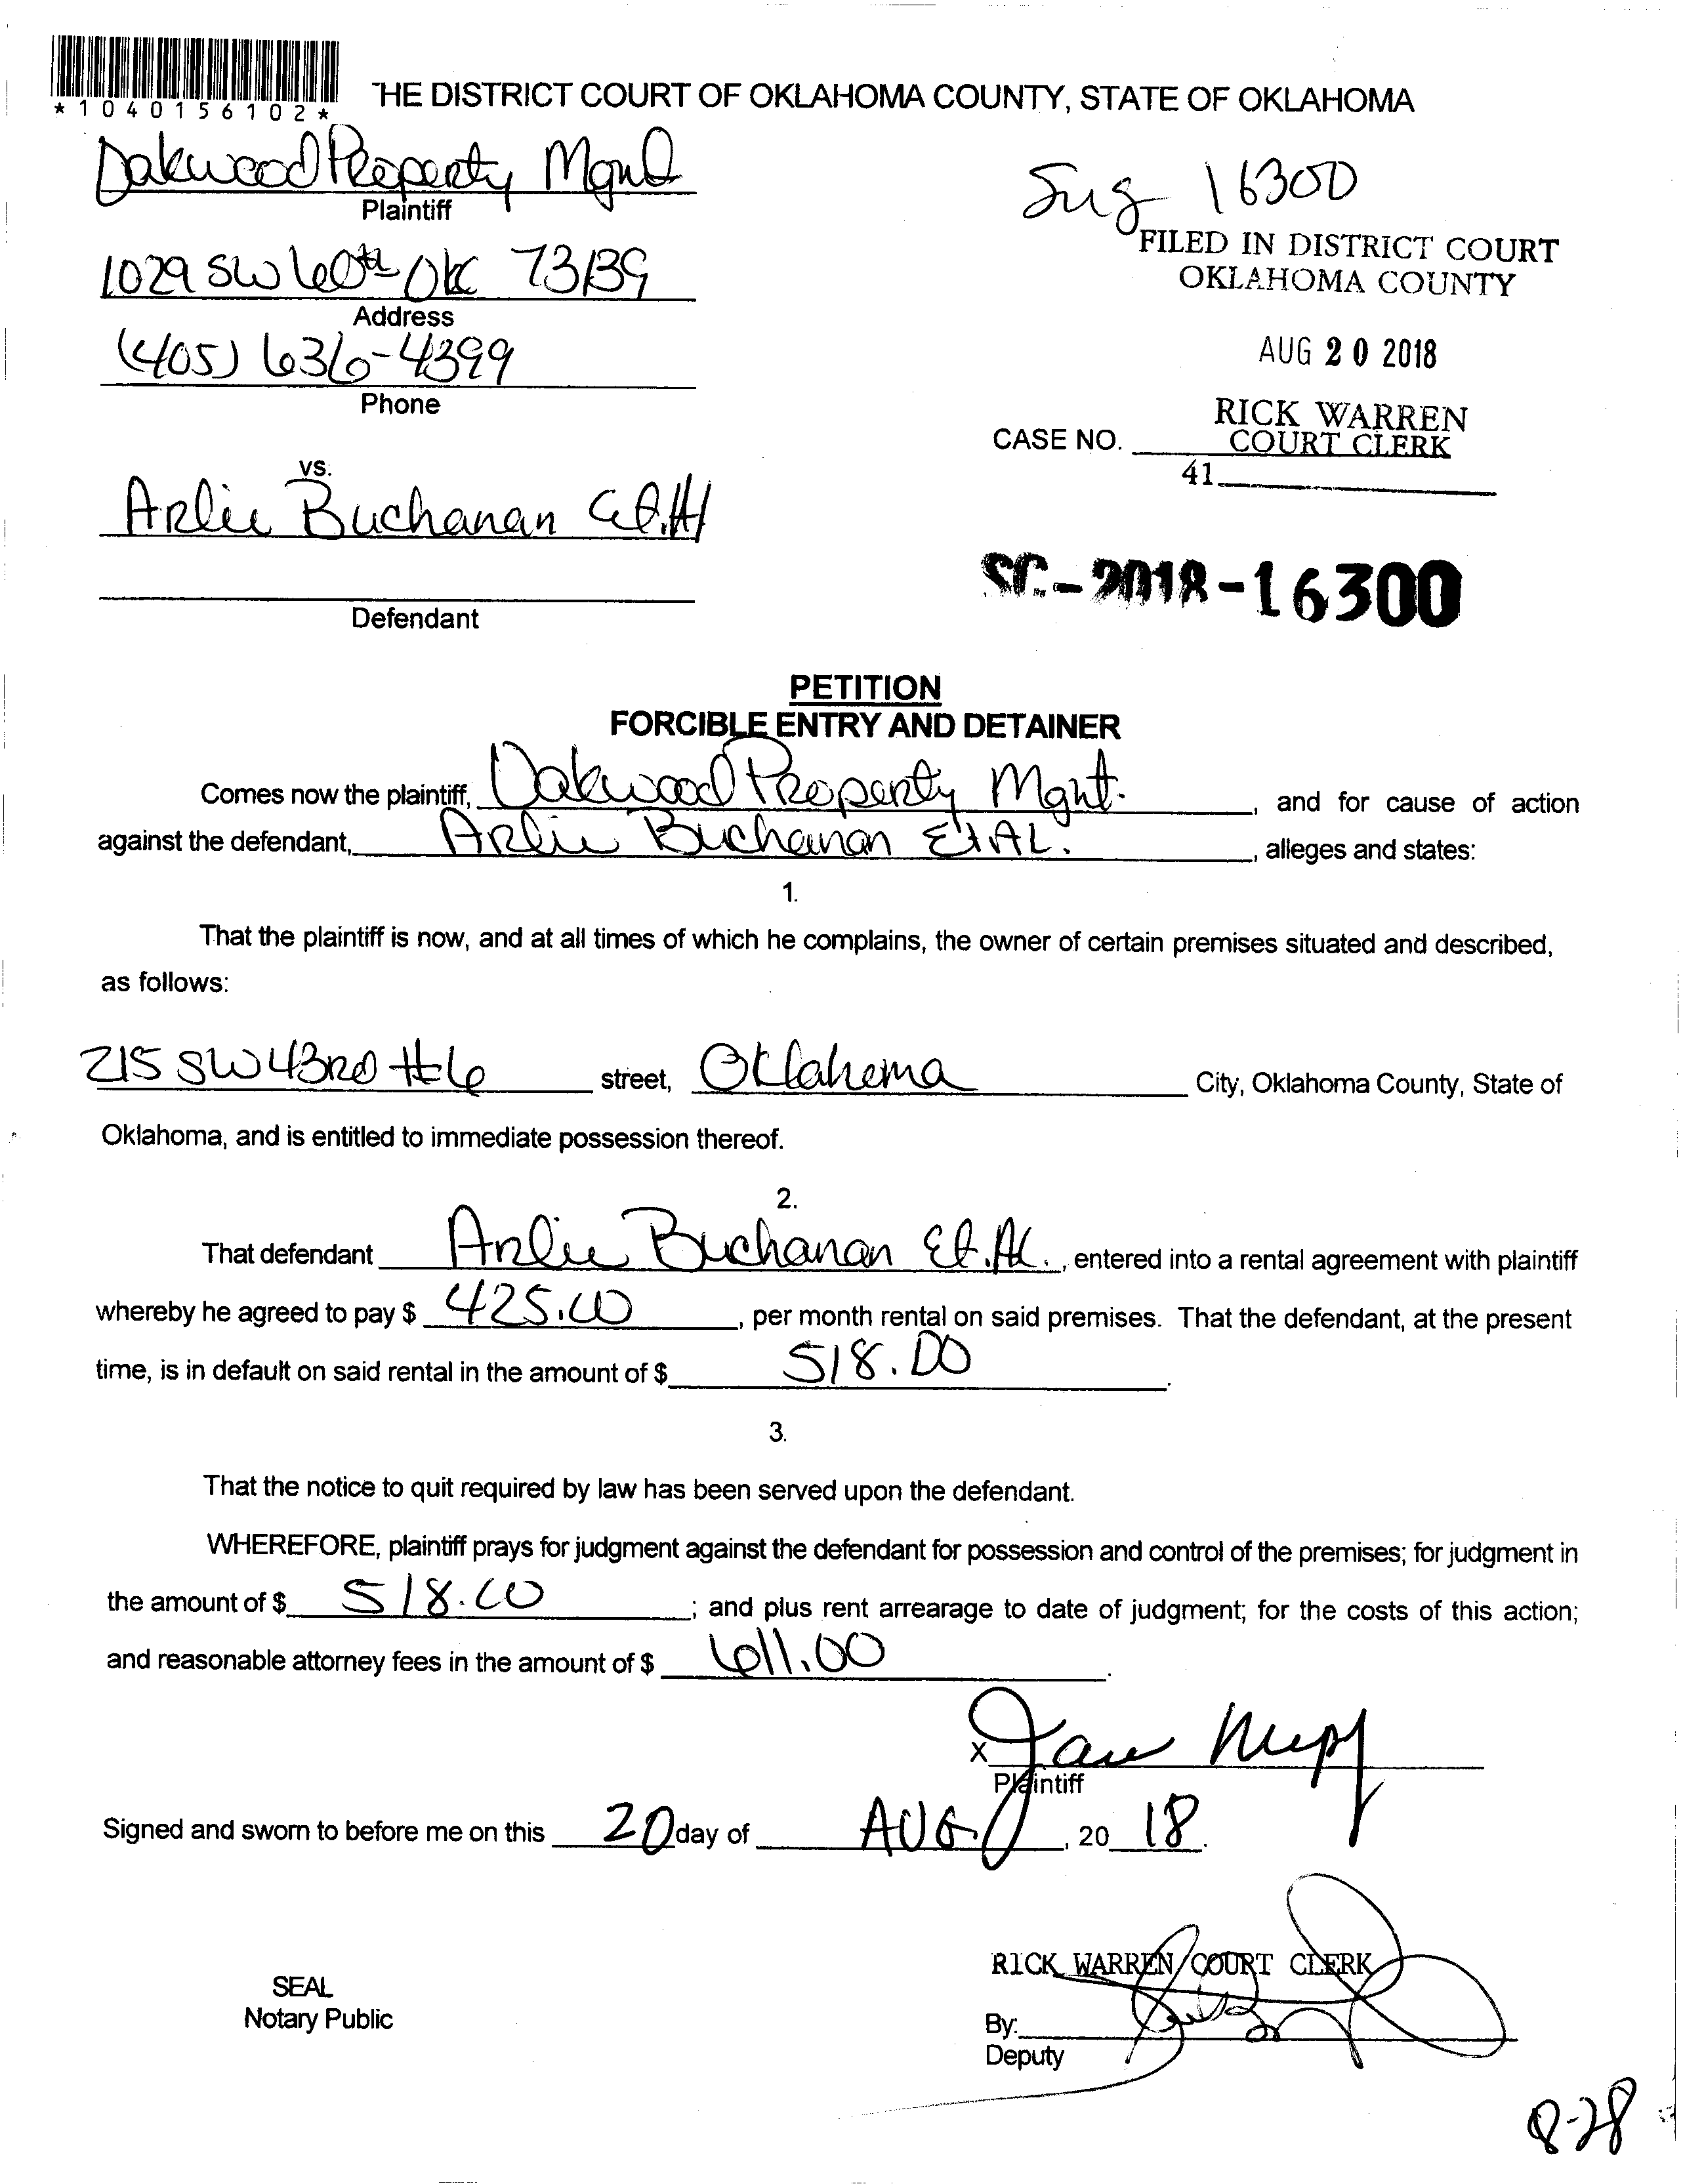 *1040156102*
THE DISTRICT COURT OF OKLAHOMA COUNTY, STATE OF OKLAHOMA
Oakwood Property Mgnt
Plaintiff
16300
FILED IN DISTRICT COURT
OKLAHOMA COUNTY
1029 SW 60th OKC 73139
Address
AUG 20 2018
(405) 636-4399
Phone
RICK WARREN
COURT CLERK
CASE NO.
41
vs.
Arlie Buchanan Et.Al
SC-2018-16300
Defendant
PETITION
FORCIBLE ENTRY AND DETAINER
Comes now the plaintiff, Oakwood Property Mgnt. , and for cause of action
against the defendant, Arlie Buchanan Et AL. , alleges and states:
1.
That the plaintiff is now, and at all times of which he complains, the owner of certain premises situated and described,
as follows:
215 SW 43RD #6 street, Oklahoma City, Oklahoma County, State of
Oklahoma, and is entitled to immediate possession thereof.
2.
That defendant Arlie Buchanan Et.Al. , entered into a rental agreement with plaintiff
whereby he agreed to pay $ 425.00 , per month rental on said premises. That the defendant, at the present
time, is in default on said rental in the amount of $ 518.00 .
3.
That the notice to quit required by law has been served upon the defendant.
WHEREFORE, plaintiff prays for judgment against the defendant for possession and control of the premises; for judgment in
the amount of $ 518.00 ; and plus rent arrearage to date of judgment; for the costs of this action;
and reasonable attorney fees in the amount of $ 611.00 .
X
Plaintiff
Signed and sworn to before me on this 20 day of AUG , 20 18.
RICK WARREN, COURT CLERK
SEAL
Notary Public
By:
Deputy
8-28